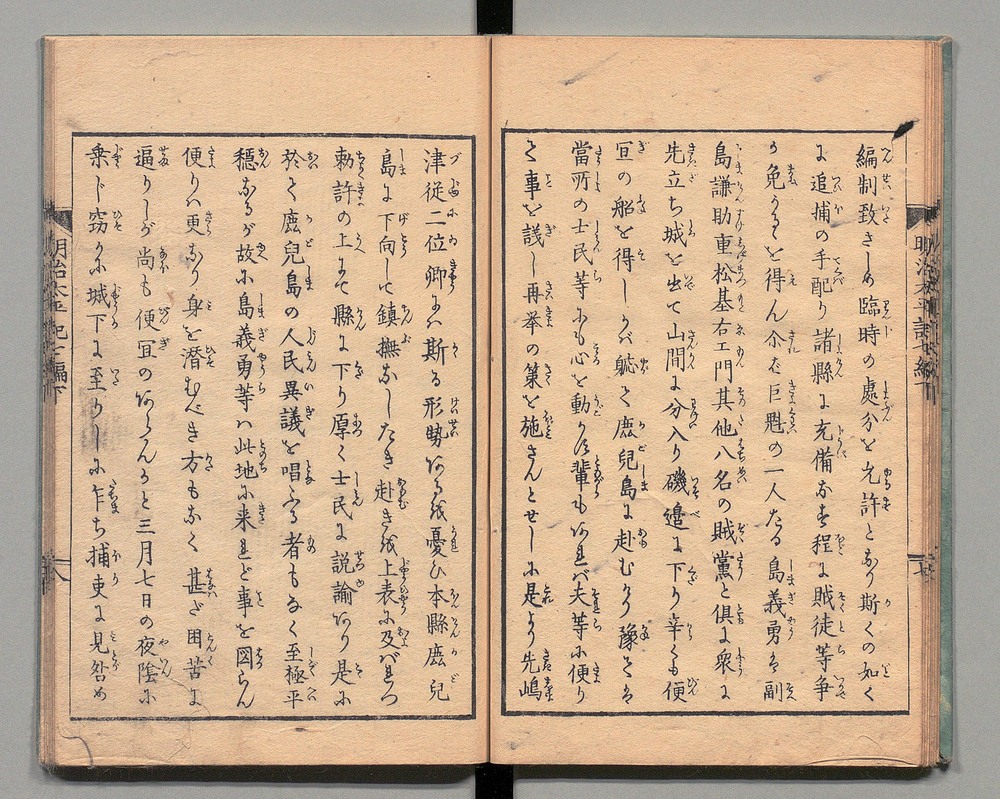 編制致さしめ臨時の處分を允許となり斯くの如く
に追捕の手配り諸縣に充備なす程に賊徒等争
か免かるゝを得ん尒るに巨魁の一人たる島義勇は副
島謙助重松基右エ門其他八名の賊黨と俱に衆に
先立ち城を出て山間に分入り磯邉に下り辛くも便
宜の船を得しかば躰て鹿兒島に赴むかり豫ては
當所の士民等にも心を動かす輩もあれば夫等に便り
て事を議し再挙の策を施さんとせしに是より先嶋
津従二位卿には斯る形勢あるを憂ひ本縣鹿兒
島に下向して鎮撫なしたき赴きを上表に及ばれつ
勅許の上にて縣に下り厚く士民に説諭あり是に
於て鹿兒島の人民異議を唱ふる者もなく至極平
穏なるが故に島義勇等ハ此地に来れど事を図らん
便りハ更なり身を潜むべき方もなく甚ど困苦に
逼りしが尚も便宜のあらんかと三月七日の夜陰に
乗じ窃かに城下に至りしに乍ち捕吏に見咎め
明治太平記七編下
明治太平記七編下
八